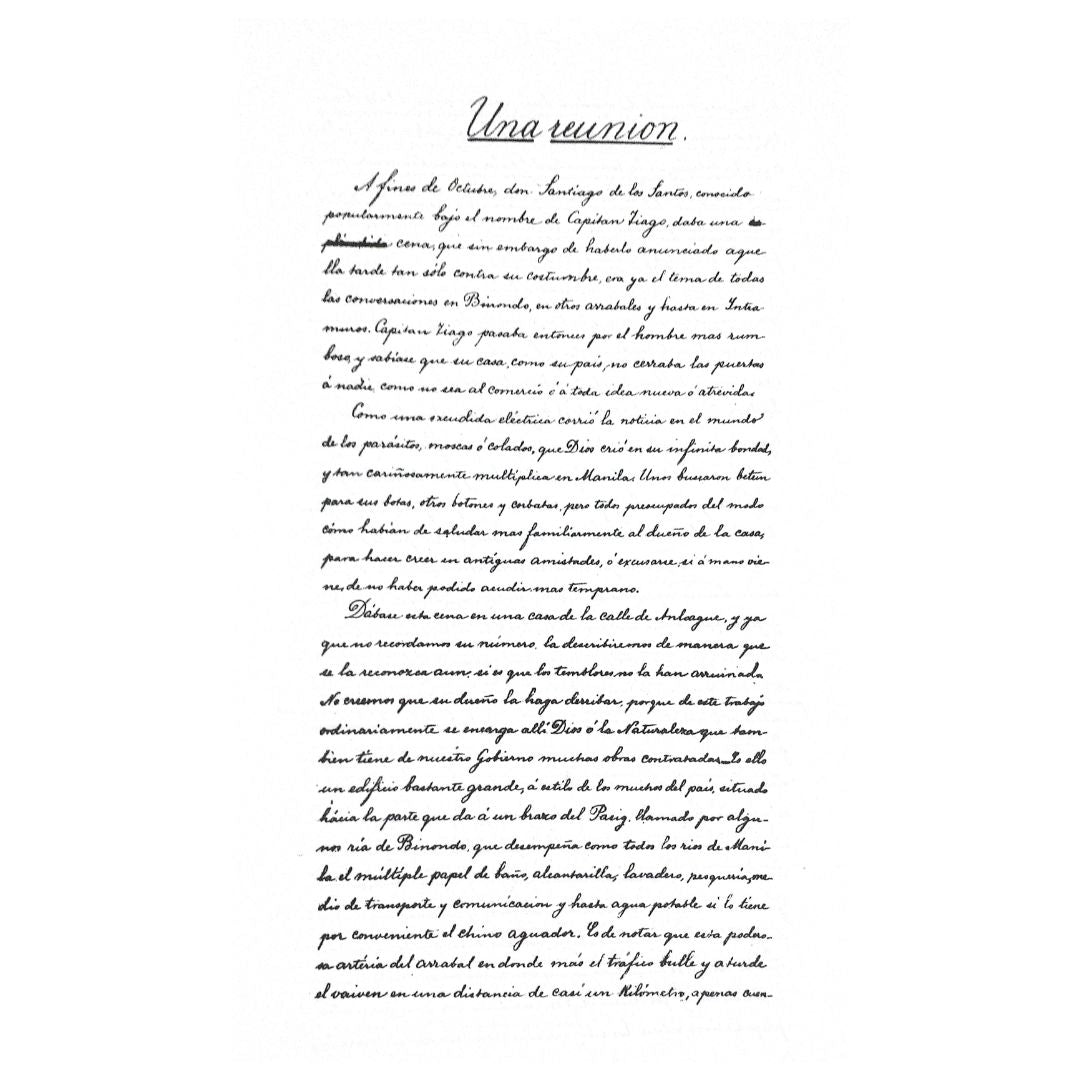 Una reunion.
A fines de Octubre, don Santiago de los Santos, conocido
popularmente bajo el nombre de Capitan Tiago, daba una es-
plendida cena, que sin embargo de haberlo anunciado aque
lla tarde tan sólo contra su costumbre, era ya el tema de todas
las conversaciones en Binondo, en otros arrabales y hasta en Intra
muros. Capitan Tiago pasaba entonces por el hombre mas rum-
boso, y sabíase que su casa, como su país, no cerraba las puertas
á nadie, como no sea al comercio ó á toda idea nueva ó atrevida.
Como una sacudida eléctrica corrió la noticia en el mundo
de los parásitos, moscas ó colados, que Dios crió en su infinita bondad,
y tan cariñosamente multiplica en Manila. Unos buscaron betun
para sus botas, otros botones y corbatas, pero todos preocupados del modo
cómo habían de saludar mas familiarmente al dueño de la casa,
para hacer creer en antíguas amistades, ó excusarse, si á mano vie-
ne, de no haber podido acudir mas temprano.
Dábase esta cena en una casa de la calle de Anloague, y ya
que no recordamos su número, la describiremos de manera que
se la reconozca aun, si es que los temblores no la han arruinado.
No creemos que su dueño la haga derribar, porque de este trabajo
ordinariamente se encarga allí Dios ó la Naturaleza que tam-
bien tiene de nuestro Gobierno muchas obras contratadas_Es ello
un edificio bastante grande, á estilo de los muchos del país, situado
hácia la parte que da á un brazo del Pasig, llamado por algu-
nos ría de Binondo, que desempeña como todos los rios de Mani-
la el múltiple papel de baño, alcantarilla, lavadero, pesquería, me-
dio de transporte y comunicacion y hasta agua potable si lo tiene
por conveniente el chino aguador. Es de notar que esta podero-
sa artéria del arrabal en donde más el tráfico bulle y aturde
el vaiven en una distancia de casi un Kilómetro, apenas cuen-